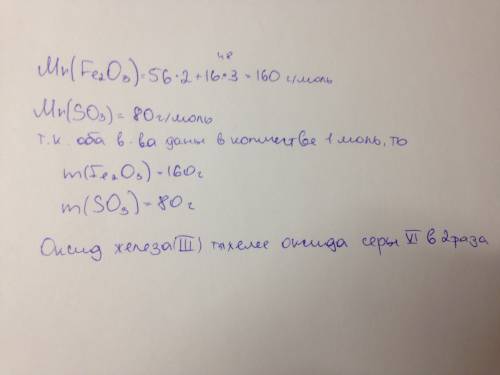 48
Mr(Fe₂O₃)=56·2+16·3=160 г/моль
Mr(SO₃)=80г/моль
т.к. оба в-ва даны в количестве 1 моль, то
m(Fe₂O₃)=160г
m(SO₃)=80г
Оксид железа(III) тяжелее оксида серы VI в 2 раза